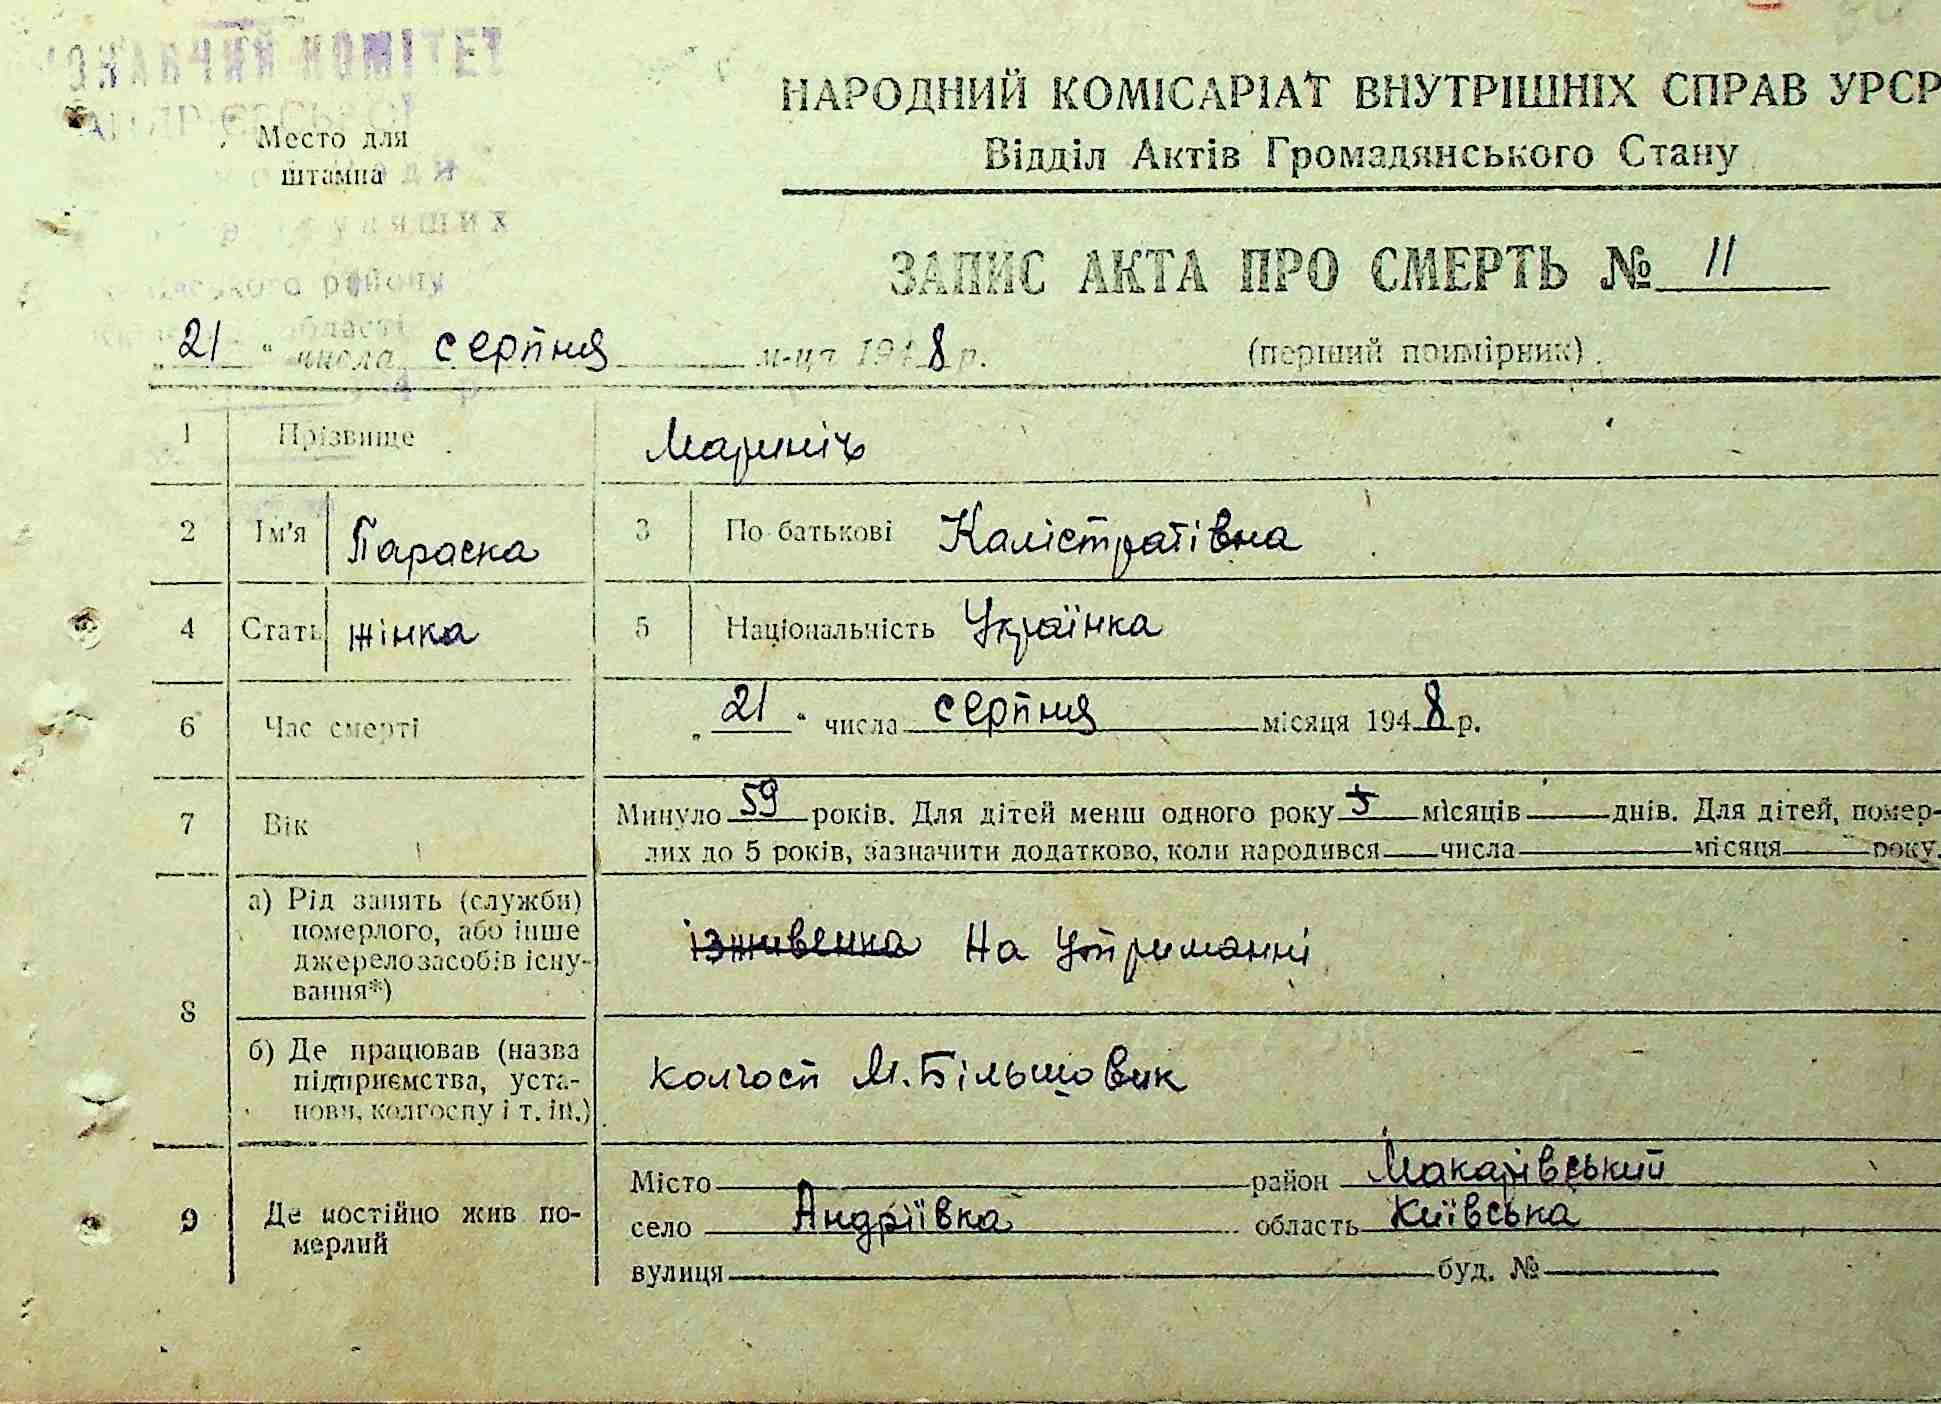 КОМІТЕТ
НАРОДНИЙ КОМІСАРІАТ ВНУТРІШНІХ СПРАВ УРСР
Место для
штампа
Відділ Актів Громадянського Стану
ЗАПИС АКТА ПРО СМЕРТЬ № 11
району
області
„ 21 " числа серпня м-ця 1948 р.
(перший примірник)
1 Прізвище Маринич
2 Ім'я Параска 3 По батькові Калістратівна
4 Стать жінка 5 Національність Українка
6 Час смерті „ 21 " числа серпня місяця 1948 р.
7 Вік Минуло 59 років. Для дітей менш одного року 5 місяців днів. Для дітей, помер-
лих до 5 років, зазначити додатково, коли народився числа місяця року.
8 а) Рід занять (служби)
померлого, або інше
джерело засобів існу-
вання*)
ізживенка На утриманні
б) Де працював (назва
підприємства, уста-
нови, колгоспу і т. ін.)
колгосп М. Більшовик
9 Де постійно жив по-
мерлий
Місто район Макарівський
село Андріївка область Київська
вулиця буд. №